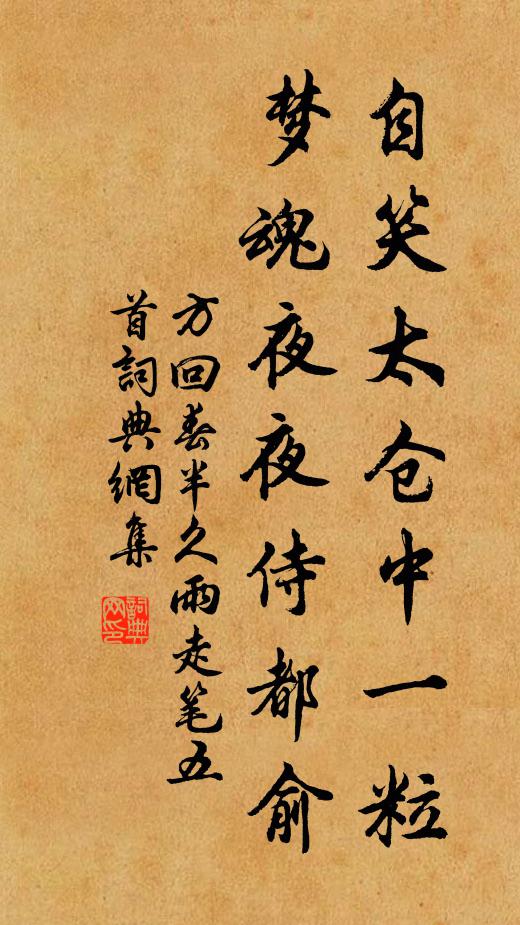 自笑太仓中一粒
梦魂夜夜侍都俞
方回春半久雨走笔五
首詞典網集
詞典
网印